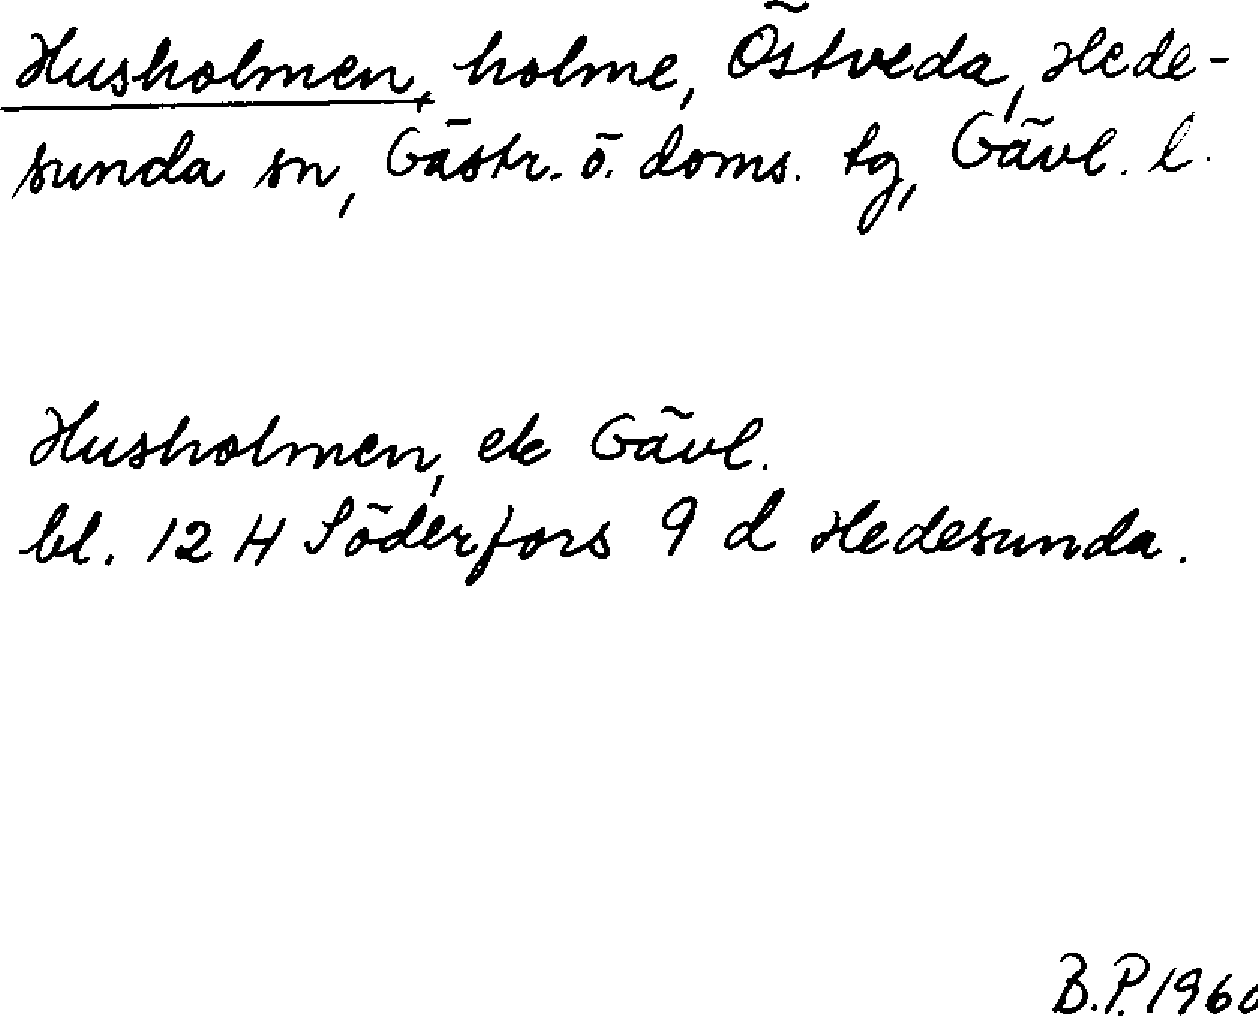 Husholmen, holme, Östveda, Hede-
sunda sn, Gästr. ö. doms. tg, Gävl. l.
Husholmen, ek Gävl.
bl. 12 H Söderfors 9 d Hedesunda.
B.P. 1960